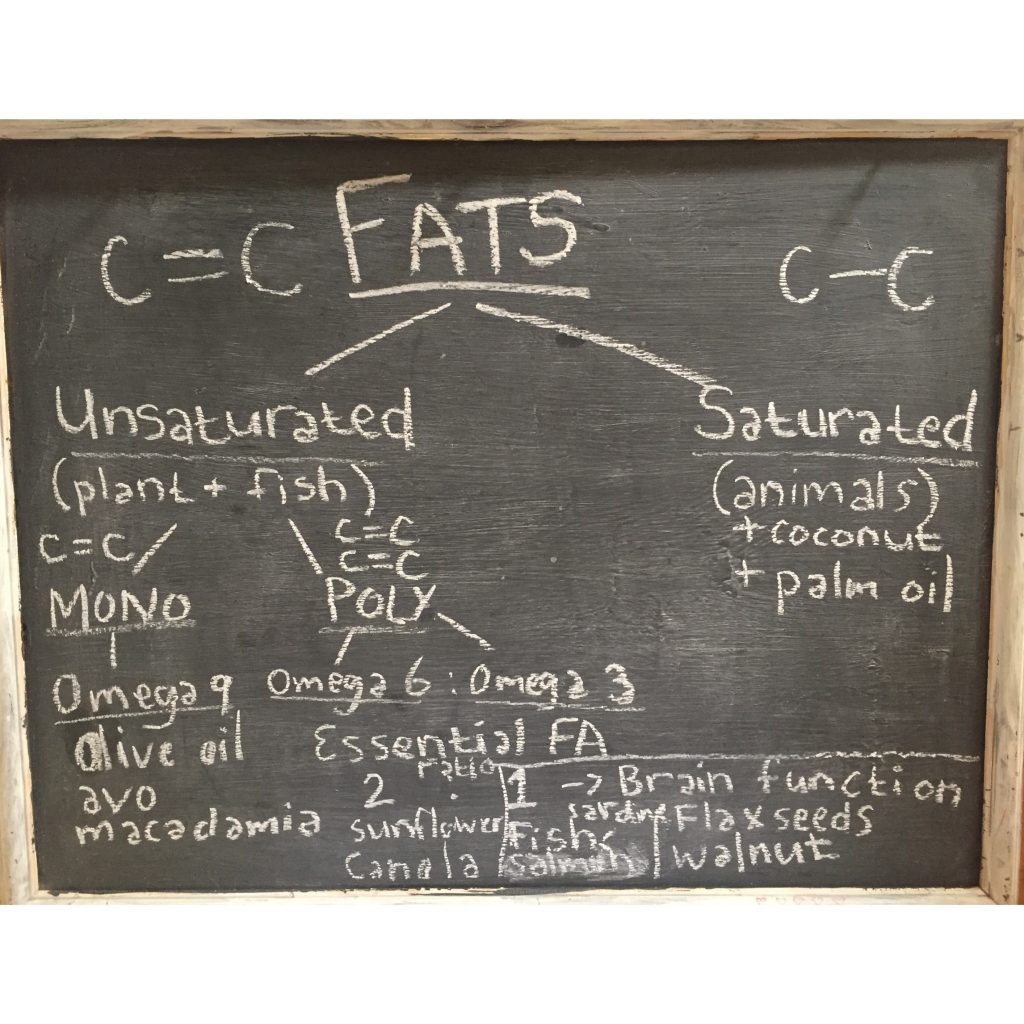 FATS
C=C
C-C
Unsaturated
Saturated
(plant + fish)
(animals)
+ coconut
+ palm oil
C=C
C=C
C=C
MONO
POLY
Omega 9
Omega 6 : Omega 3
olive oil
avo
macadamia
Essential FA
ratio
2 : 1 -> Brain function
sunflower
canola
Fish<
sardine
salmon
Flaxseeds
walnut